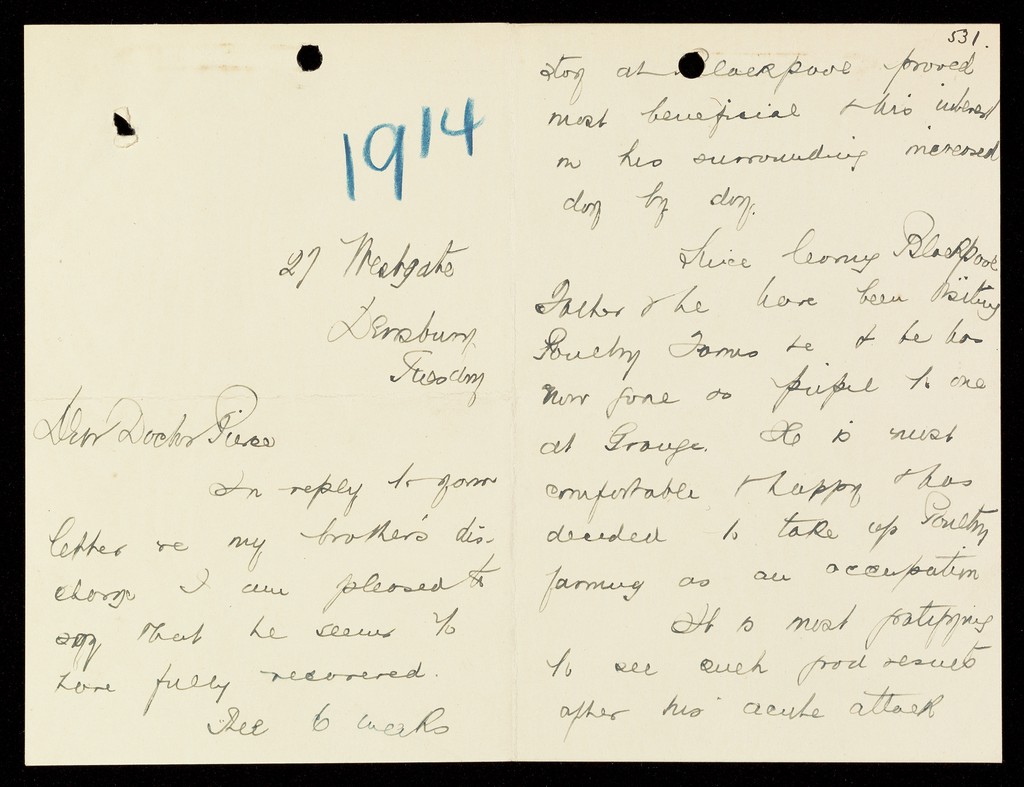 1914
27 Westgate
Dewsbury
Tuesday
Dear Doctor Pierce
In reply to your
letter re my brother's dis-
charge I am pleased to
say that he seems to
have fully recovered.
The 6 weeks
531.
stay at Blackpool proved
most beneficial & his interest
in his surrounding increased
day by day.
Since leaving Blackpool
Father & he have been visiting
Poultry Farms & he has
now gone as pupil to one
at Grange. He is most
comfortable & happy & has
decided to take up Poultry
farming as an occupation
It is most gratifying
to see such good results
after his acute attack